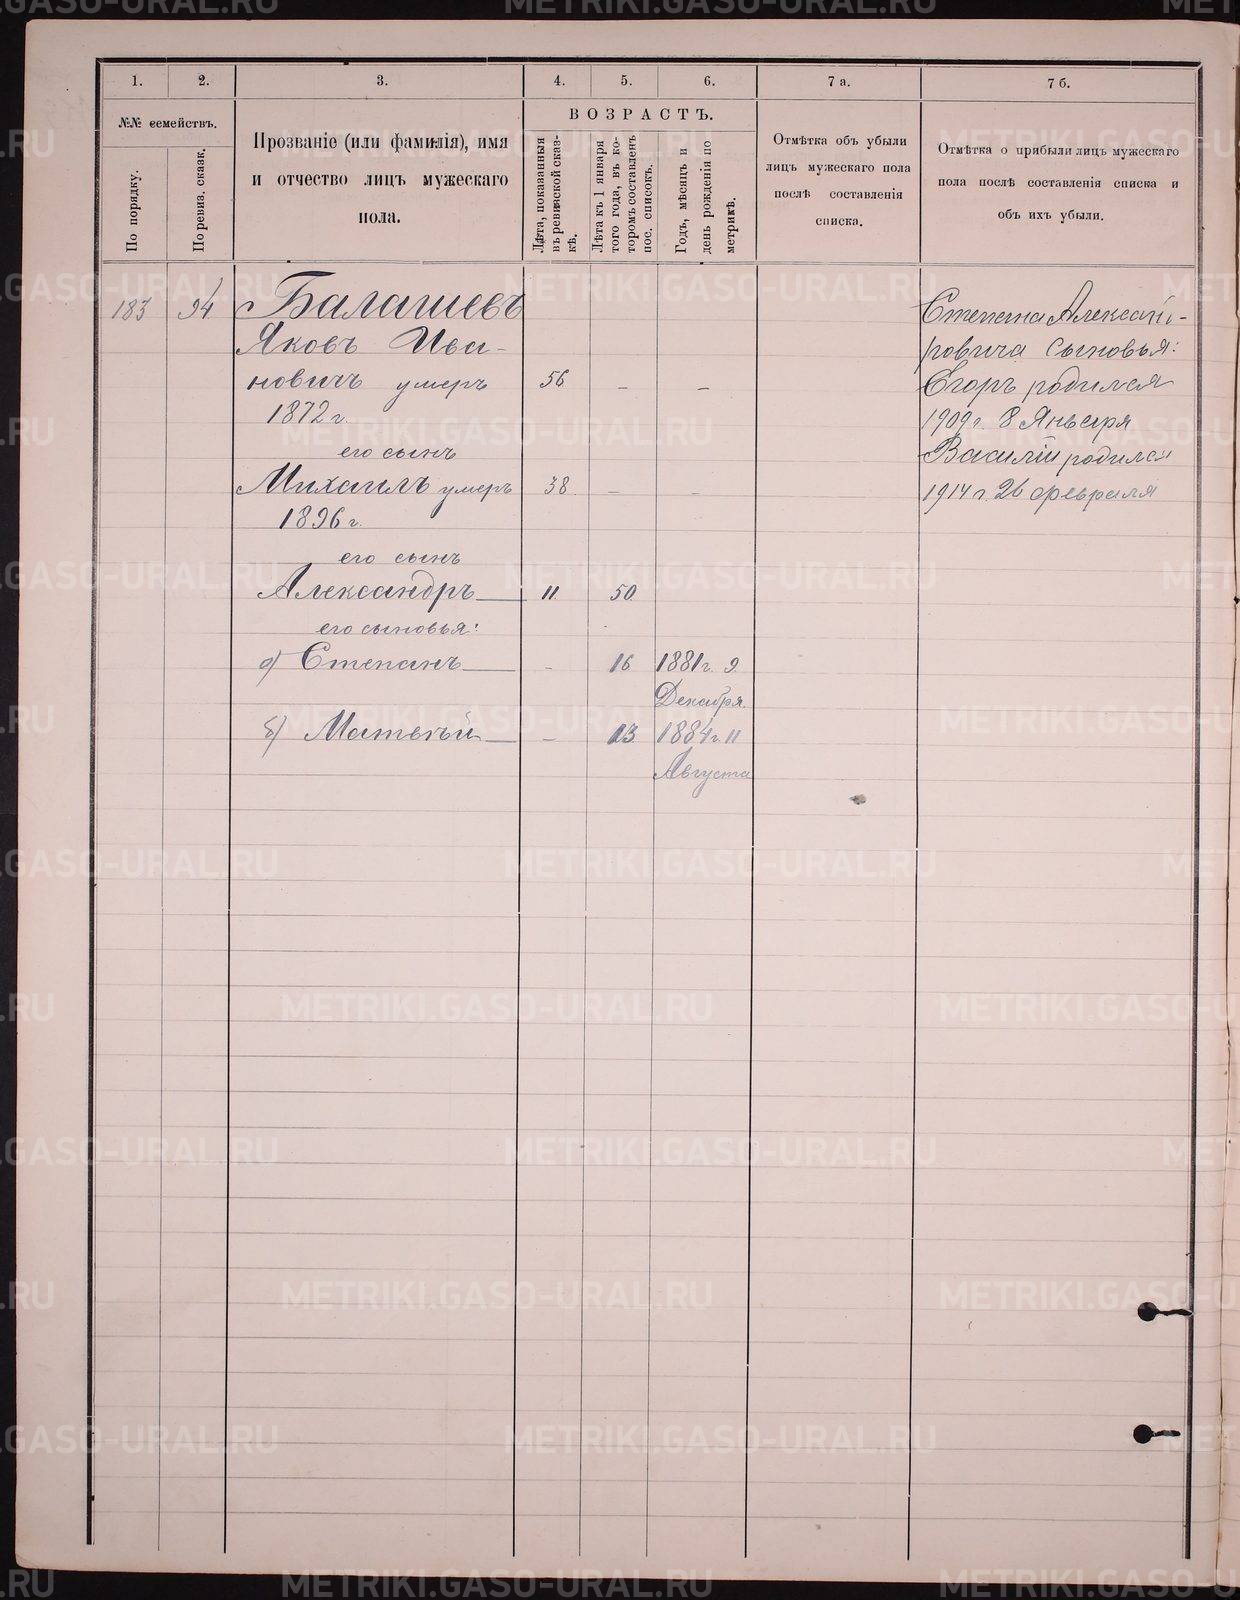 1.
2.
3.
4.
5.
6.
7 а.
7 б.
№№ семействъ.
По порядку.
По ревиз. сказк.
Прозваніе (или фамилія), имя
и отчество лицъ мужескаго
пола.
ВОЗРАСТЪ.
Лѣта, показанныя
въ ревизской сказ-
кѣ.
Лѣта къ 1 января
того года, въ ко-
торомъ составленъ
пос. списокъ.
Годъ, мѣсяцъ и
день рожденія по
метрикѣ.
Отмѣтка объ убыли
лицъ мужескаго пола
послѣ составленія
списка.
Отмѣтка о прибыли лицъ мужескаго
пола послѣ составленія списка и
объ ихъ убыли.
183 94 Балашевъ
Яковъ Ива-
новичъ умеръ 56 – –
1872 г.
его сынъ
Михаилъ умеръ 38 – –
1896 г.
его сынъ
Александръ 11 50
его сыновья:
а) Степанъ – 16 1881 г. 9
Декабря
б) Матвѣй – 13 1884 г. 11
Августа
Степана Александ-
ровича сыновья:
Егоръ родился
1909 г. 8 Января
Василій родился
1914 г. 26 февраля
METRIKI.GASO-URAL.RU